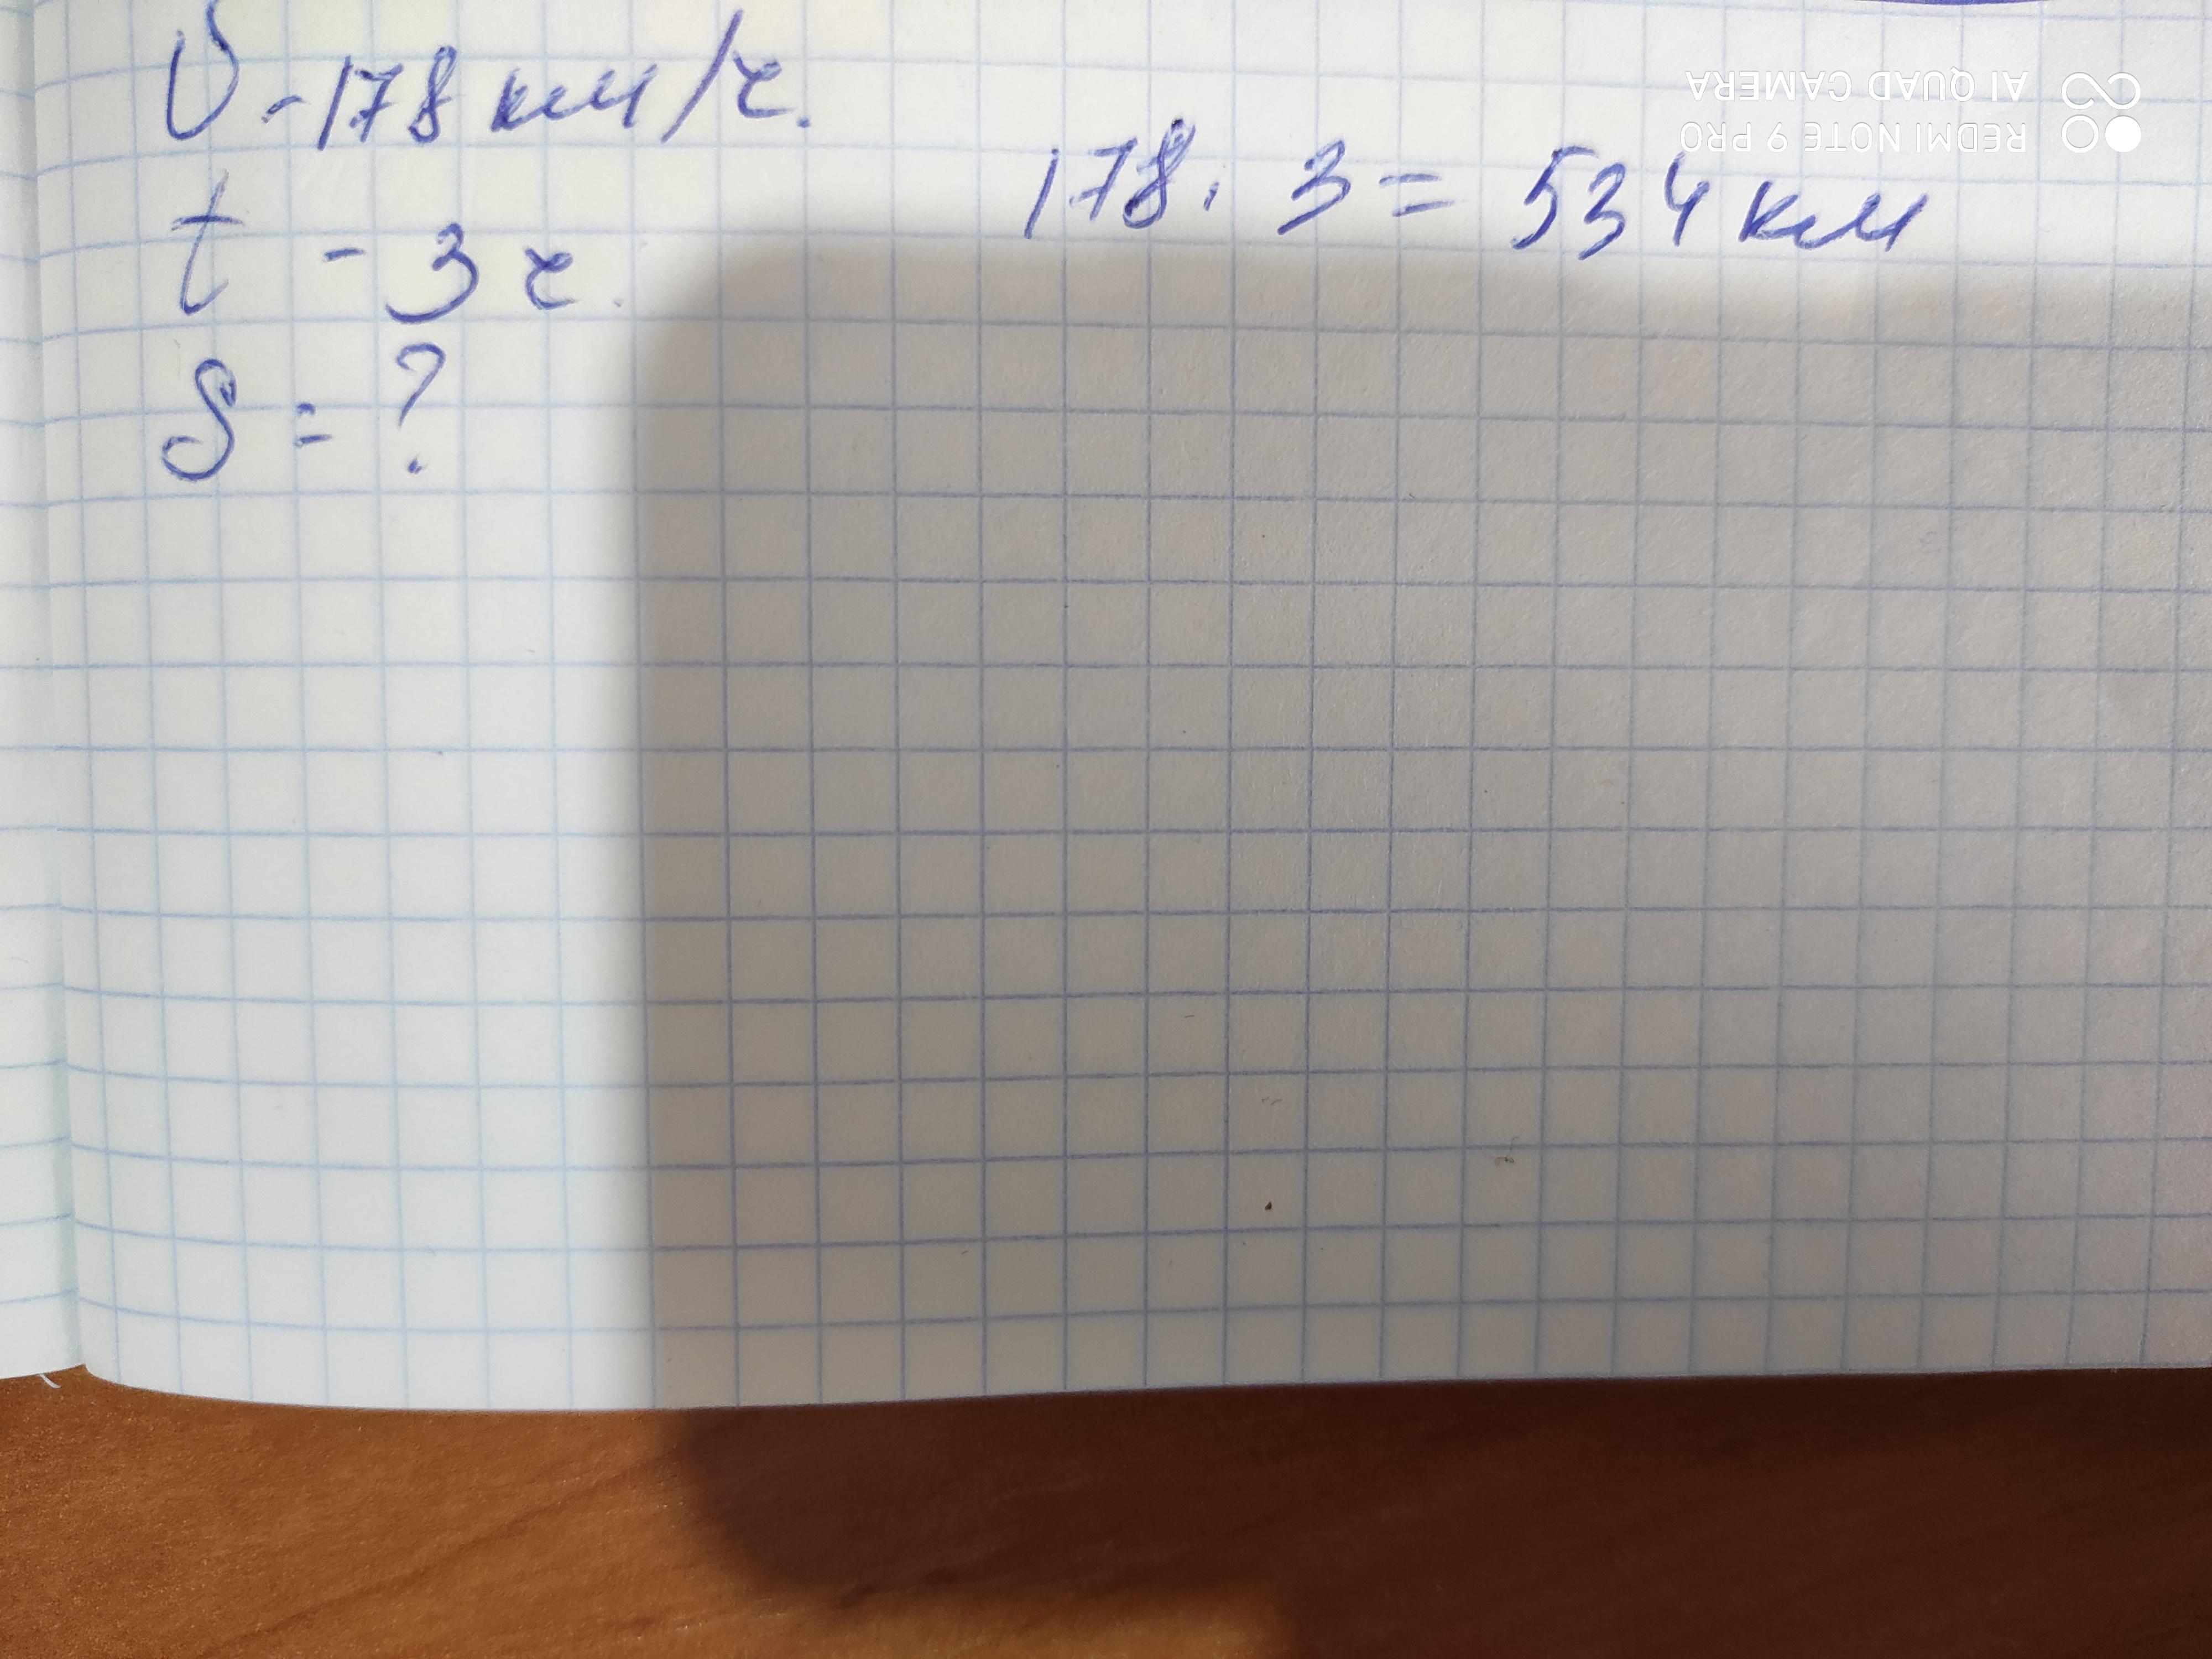 V - 178 км/ч.
t - 3 ч.
S = ?
178 · 3 = 534 км
REDMI NOTE 9 PRO
AI QUAD CAMERA